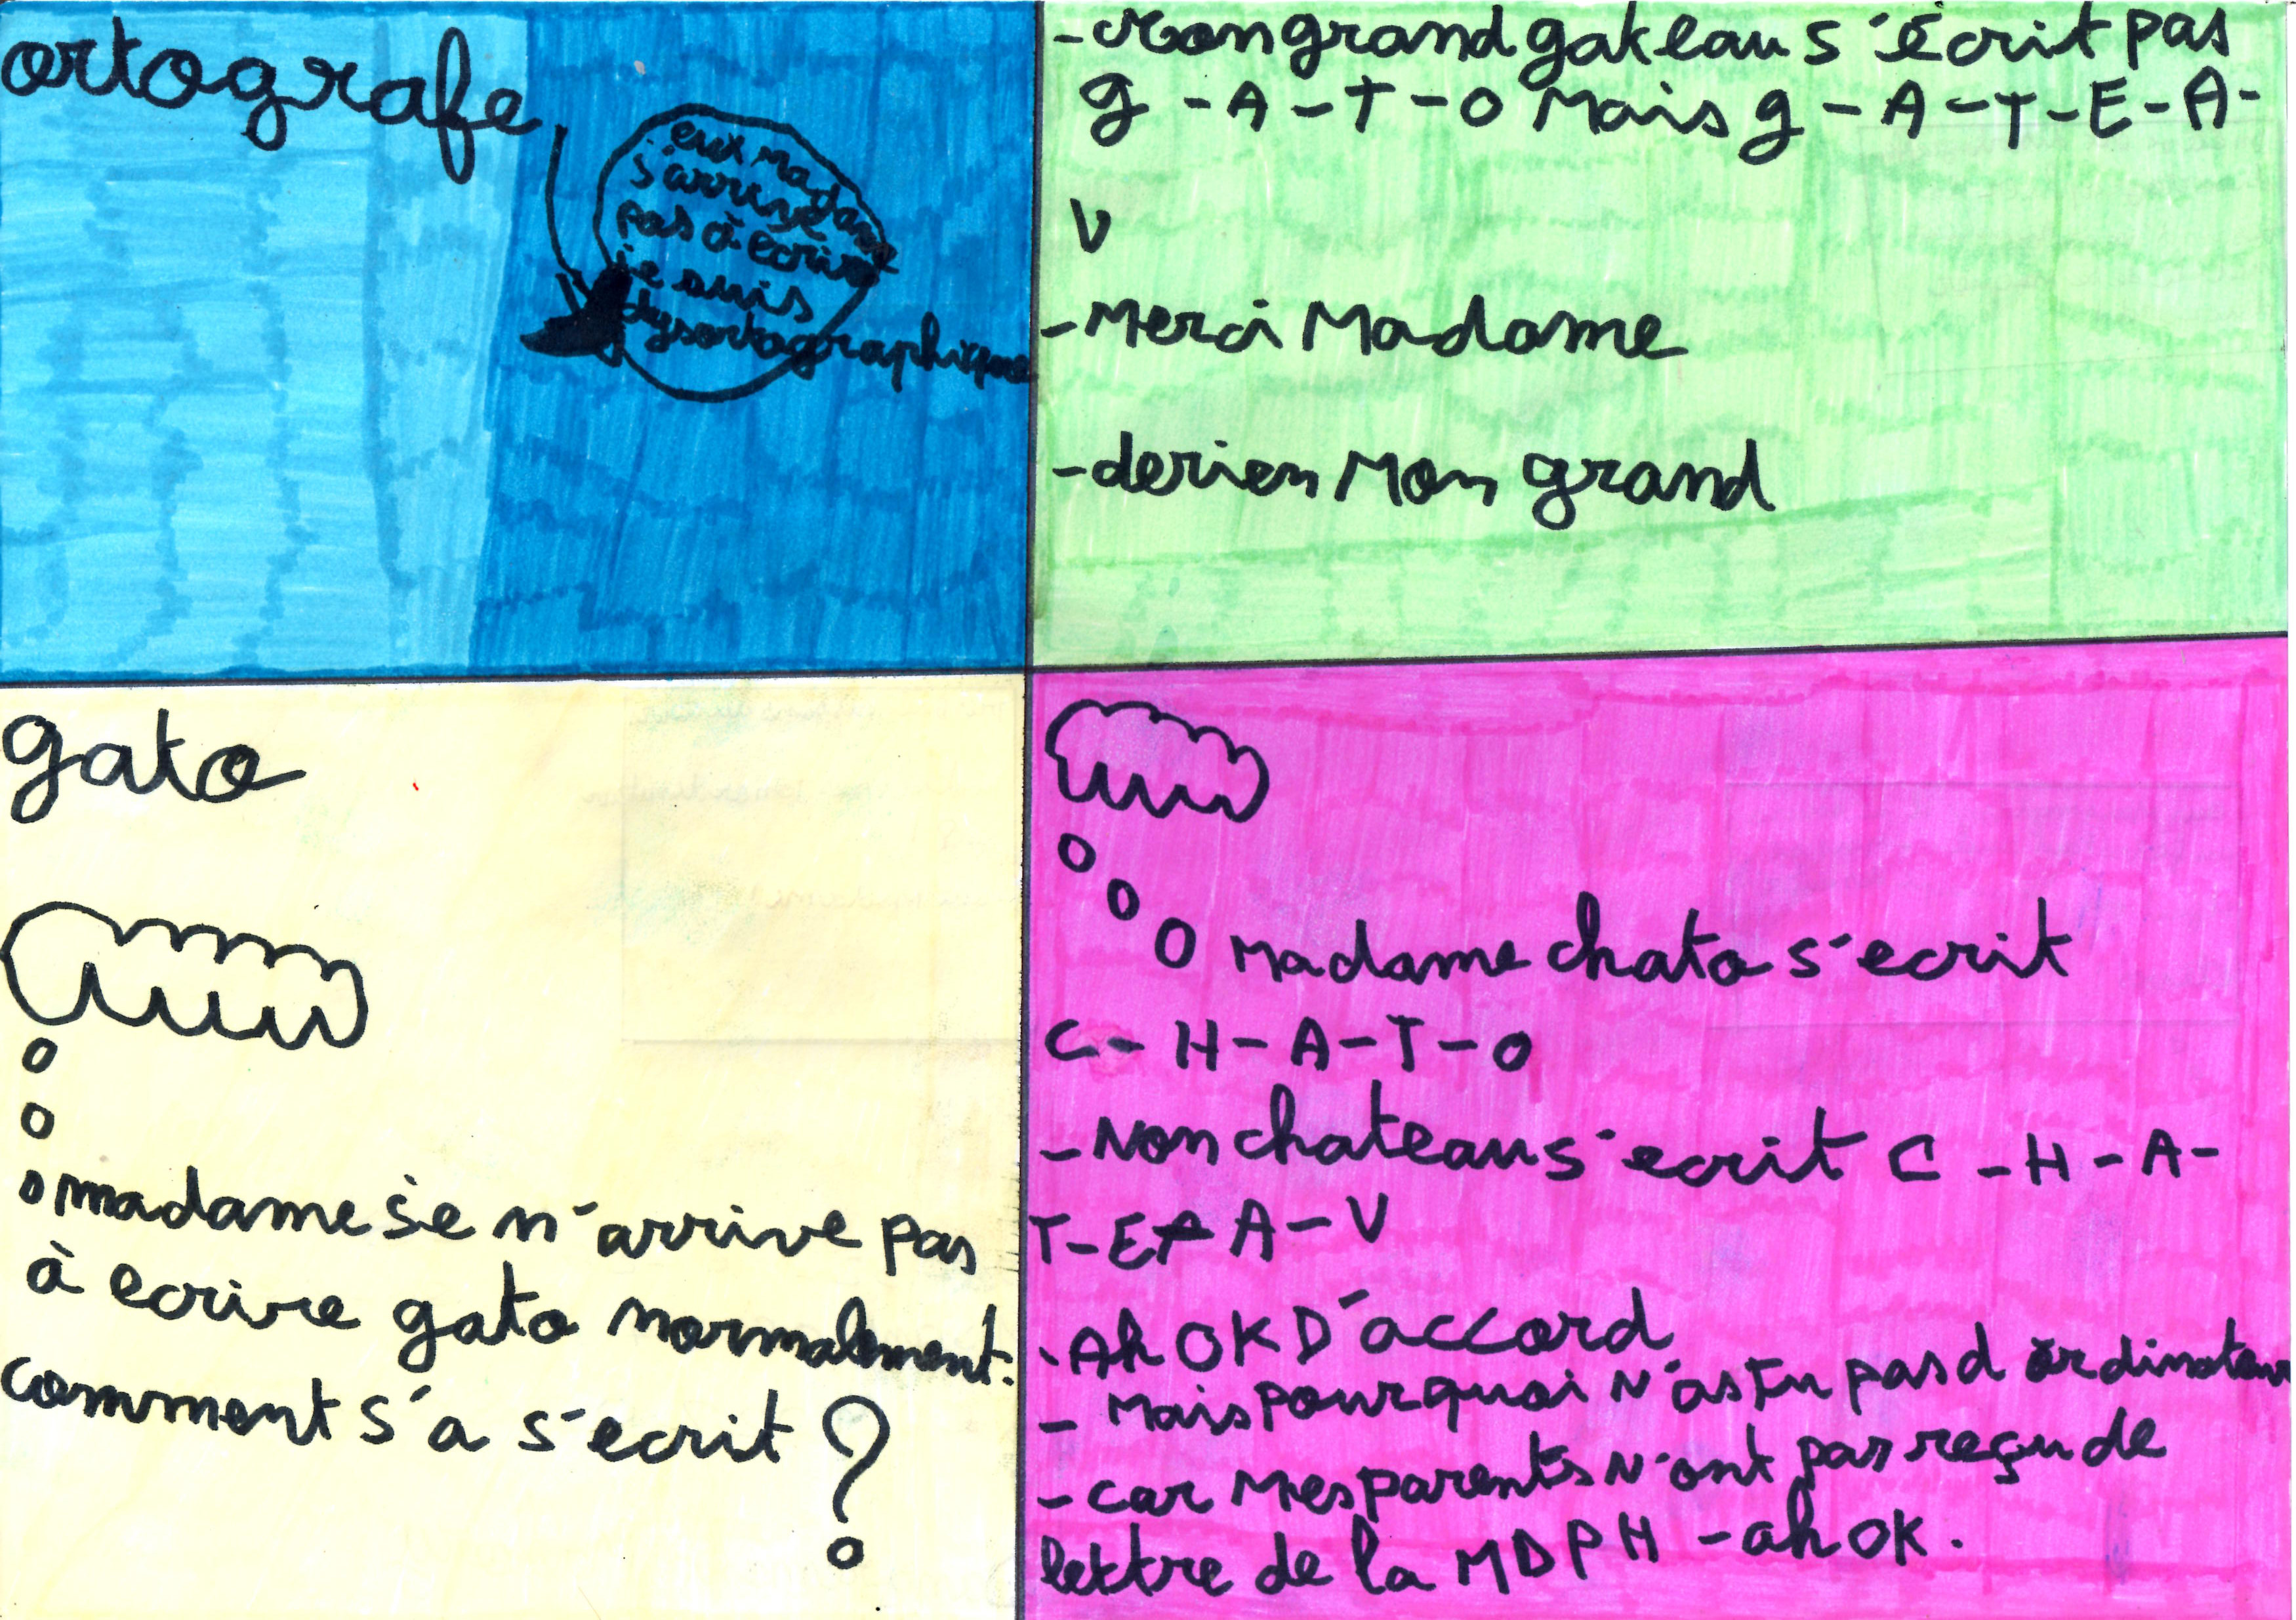 ortografe
eux madame
s'arrive
pas à ecrire
je suis
dysortographique
gato
madame se n'arrive pas
à ecrire gato normalement.
comment s'a s'ecrit ?
-Mon grand gateau s'écrit pas
g-A-T-O Mais g-A-T-E-A-
U
-Merci Madame
-derien Mon grand
Madame chato s'ecrit
C-H-A-T-O
-Non chateau s'ecrit C-H-A-
T-E-A-U
-Ah OK D'accord
- Mais pourquoi N'as tu pas d ordinateur
- car Mes parents N'ont pas reçu de
lettre de la MDPH -ah OK.